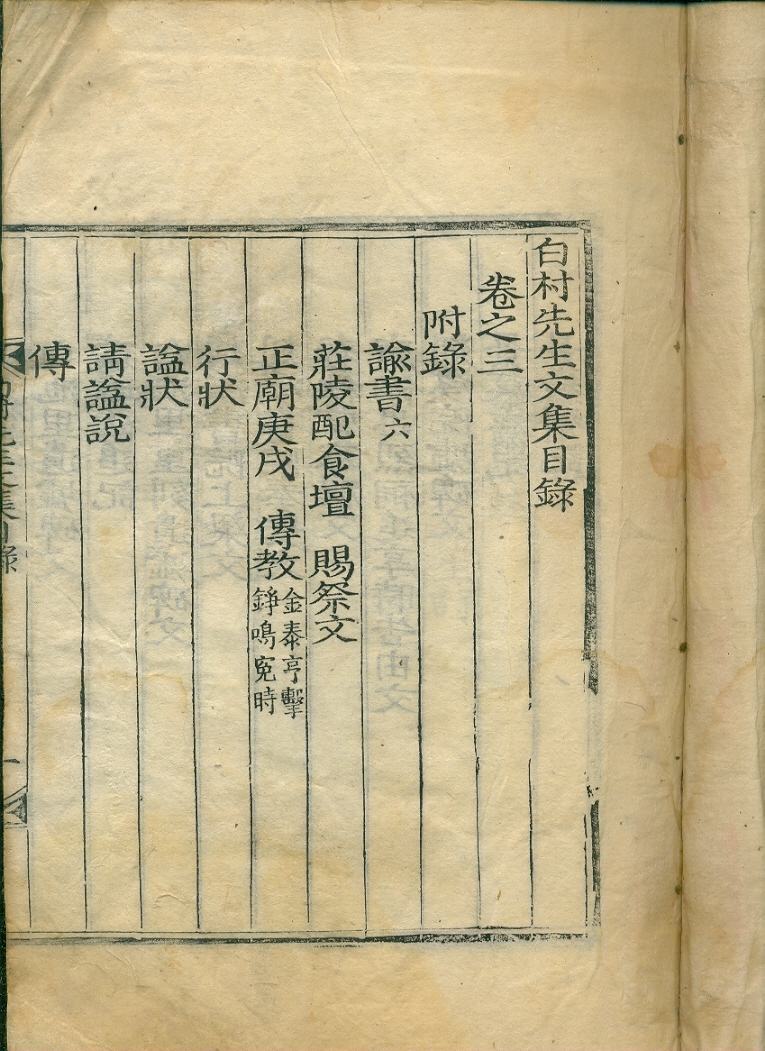 白村先生文集目錄
卷之三
附錄
諭書六
莊陵配食壇 賜祭文
正廟庚戌 傳教 金泰亨擊
錚鳴寃時
行狀
諡狀
請諡說
傳